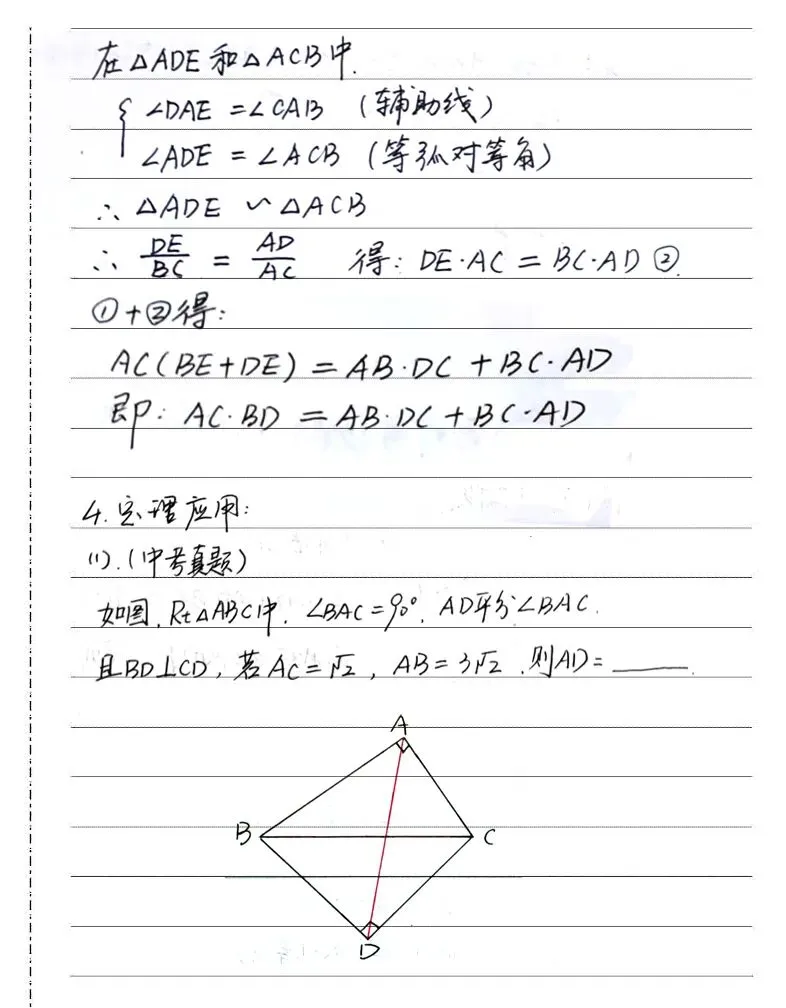 在△ADE和△ACB中.
{ ∠DAE=∠CAB (辅助线)
∠ADE=∠ACB (等弧对等角)
∴ △ADE ∽ △ACB
∴ DE/BC = AD/AC 得: DE·AC=BC·AD ②
①+②得:
AC(BE+DE)=AB·DC+BC·AD
即: AC·BD=AB·DC+BC·AD
4.定理应用:
(1).(中考真题)
如图,Rt△ABC中,∠BAC=90°,AD平分∠BAC.
且BD⊥CD,若AC=√2,AB=3√2,则AD=______.
A
B C
D